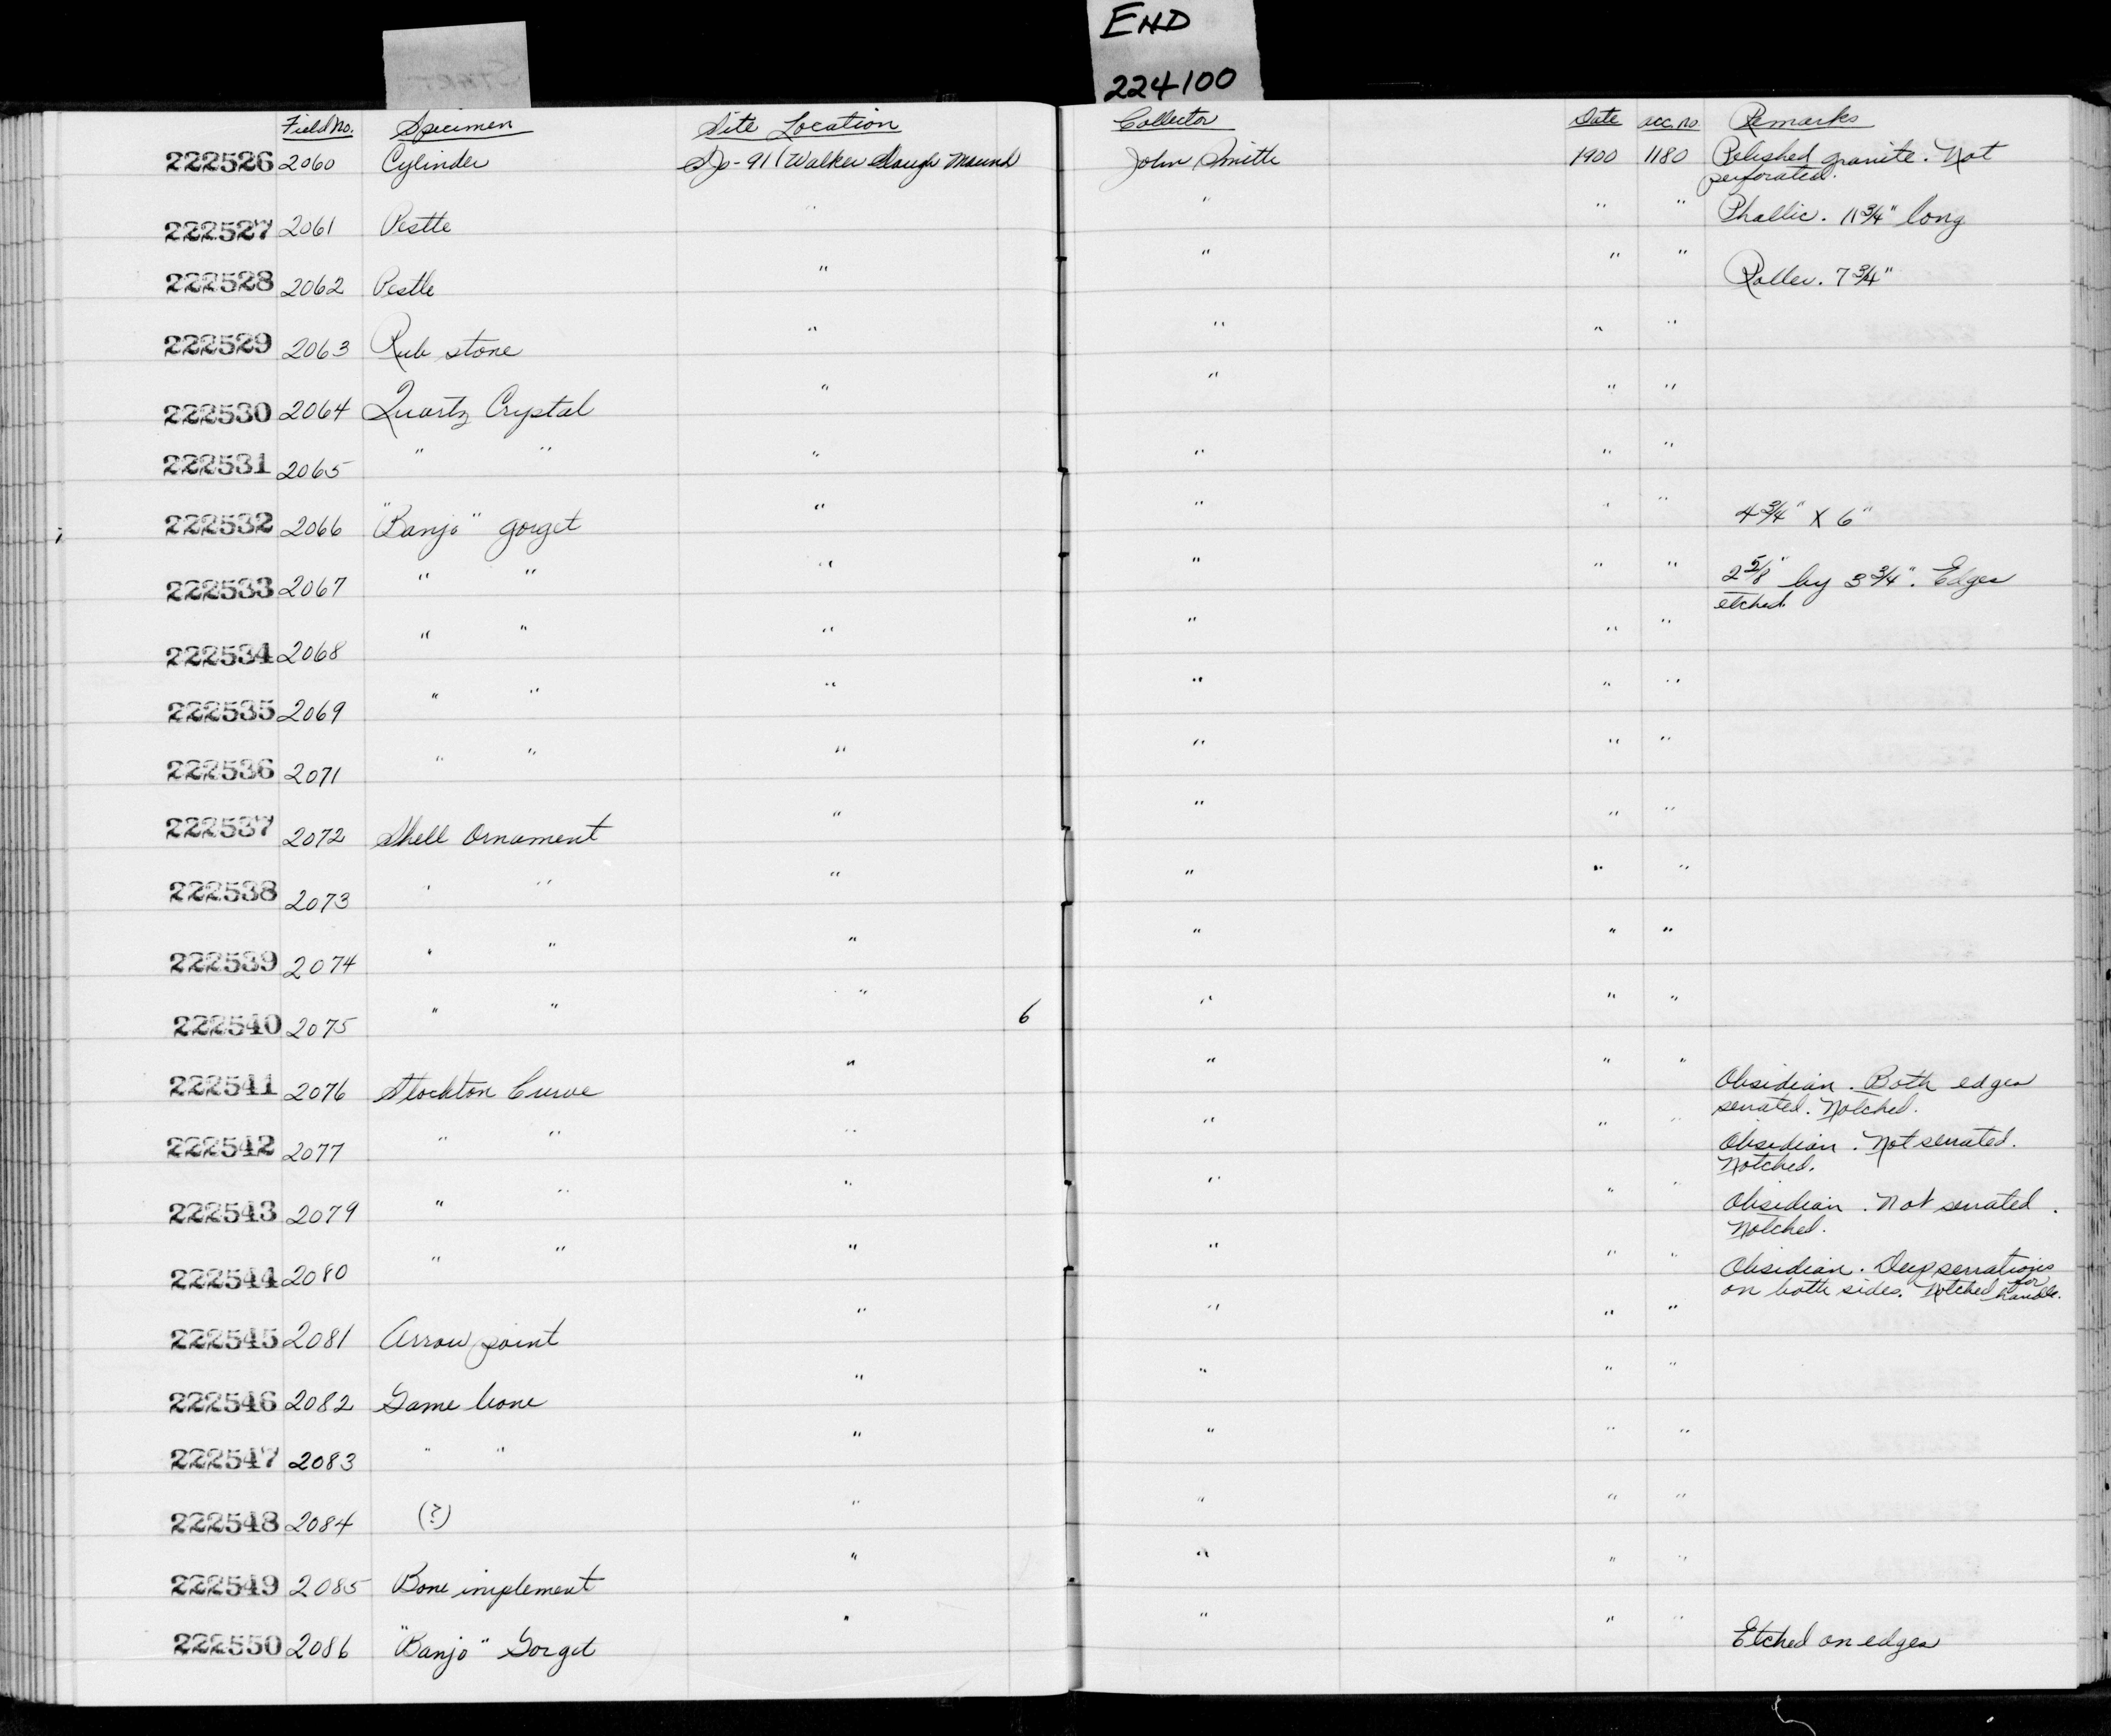 END
224100
START
Field No. Specimen Site Location Collector Date acc. no. Remarks
222526 2060 Cylinder SJo-91 (Walker Slough Mound John Smith 1900 1180 Polished granite. Not
perforated.
222527 2061 Pestle " " " " Phallic. 11 3/4" long
222528 2062 Pestle " " " " Roller. 7 3/4"
222529 2063 Rub stone " " " "
222530 2064 Quartz Crystal " " " "
222531 2065 " " " " " "
222532 2066 "Banjo" gorget " " " " 4 3/4" X 6"
222533 2067 " " " " " " 2 5/8" by 3 3/4". Edges
etched.
222534 2068 " " " " " "
222535 2069 " " " " " "
222536 2071 " " " " " "
222537 2072 Shell Ornament " " " "
222538 2073 " " " " " "
222539 2074 " " " " " "
222540 2075 " " " 6 " " "
222541 2076 Stockton Curve " " " " Obsidian. Both edges
serrated. Notched.
222542 2077 " " " " " " Obsidian. Not serrated.
Notched.
222543 2079 " " " " " " Obsidian. Not serrated.
Notched.
222544 2080 " " " " " " Obsidian. Deep serrations
on both sides. Notched for handle.
222545 2081 Arrow point " " " "
222546 2082 Game bone " " " "
222547 2083 " " " " " "
222548 2084 (?) " " " "
222549 2085 Bone implement " " " "
222550 2086 "Banjo" Gorget " " " " Etched on edges